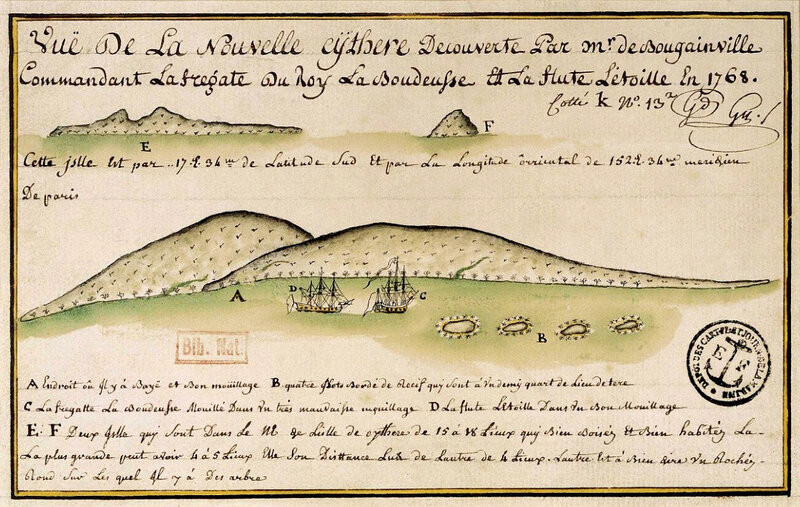 Vuë De La Nouvelle cÿthere Decouverte Par mr. de Bougainville
Commandant La fregate Du Roy La Boudeusse Et La flute L'étoille En 1768.
Cotté k No. 13
E
F
Cette jslle Est par .. 17 34 de Latitude Sud Et par La Longitude orriental de 152 34 meridien
De paris
A
D
C
B
Bib. Nat.
DEPOT DES CARTES ET JOUR DE LA MARINE
E F
A Endroit où Il y à Baye et Bon mouillage B quatre jlots Bordé de Recif qui Sont à Un demy quart de Lieu de tere
C La fregatte La Boudeusse Mouillé Dans Un trés mauvaisse mouillage D La flute L'Etoille Dans Un Bon Mouillage
E. F Deux jslle qui Sont Dans Le de Lisle de cythere de 15 à 18 Lieux qui Bien Boisés Et Bien habités La
La plus grande peut avoir 4 à 5 Lieux Elle Son Disttance de Lautre de 4 Lieux. Lautre Est à Bien dire Un Rochés
Rond Sur Les quel Il y à Des arbre